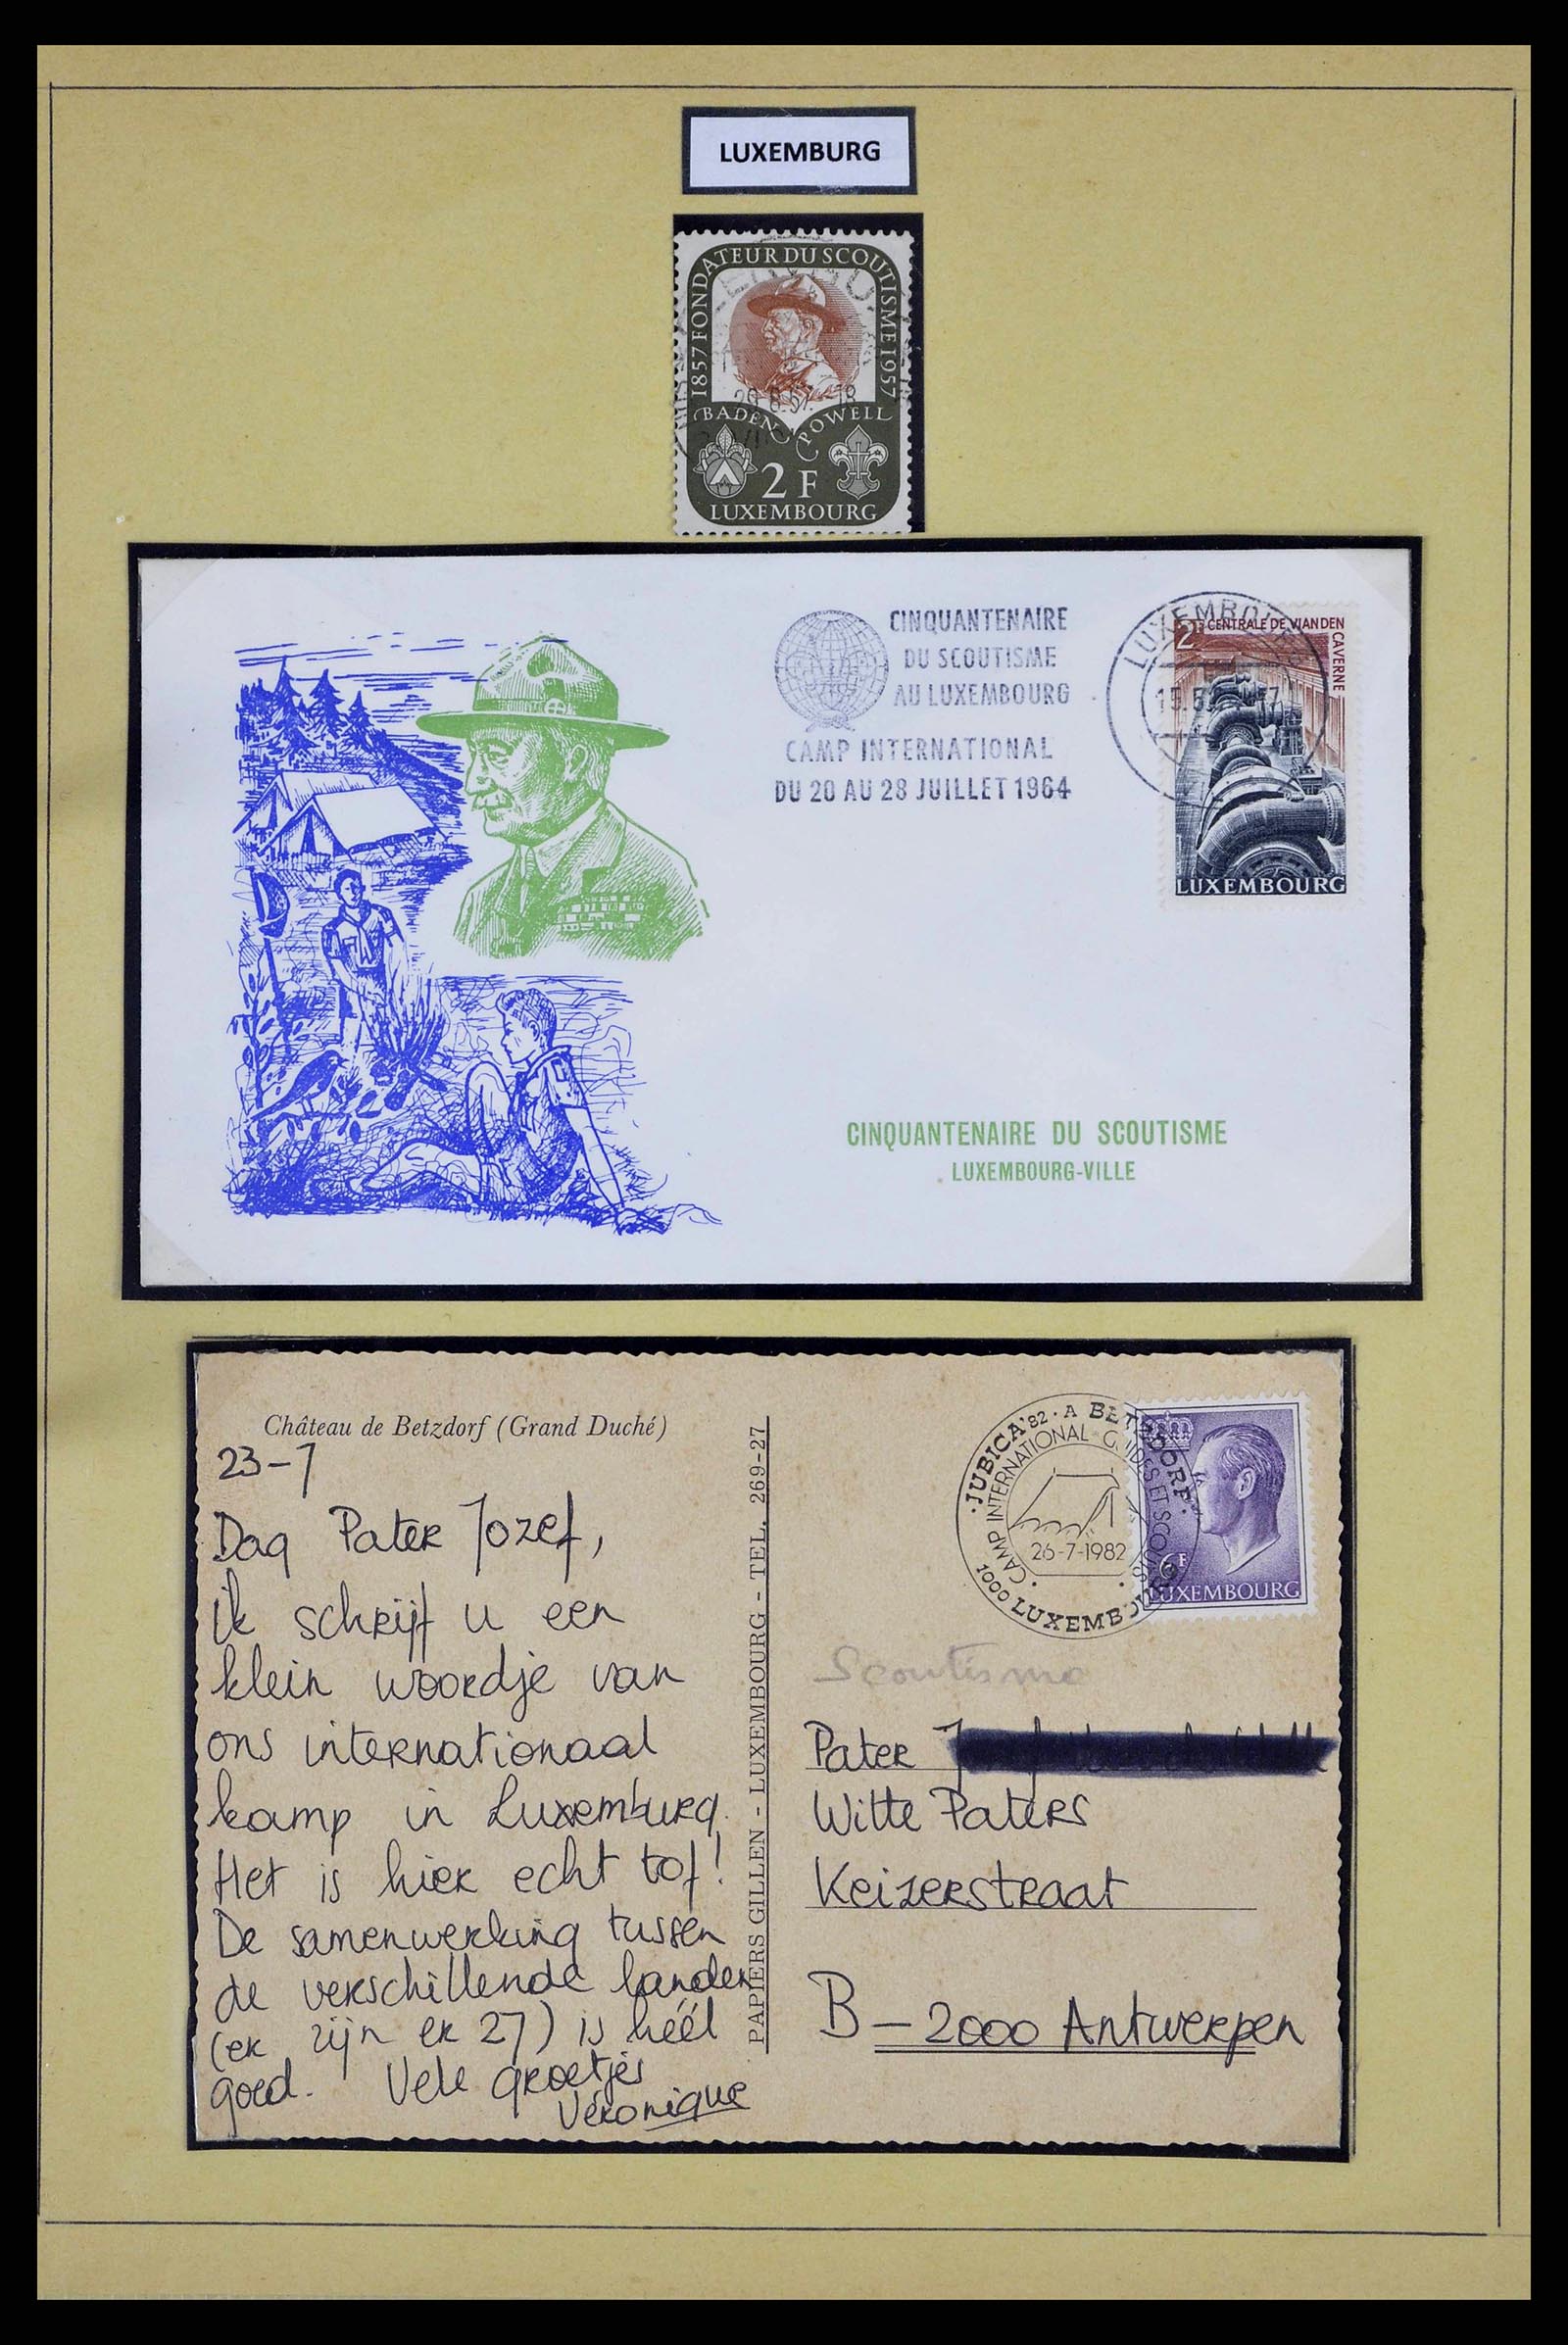 LUXEMBURG
1857 FONDATEUR DU SCOUTISME 1957
BADEN POWELL
2 F
LUXEMBOURG
CINQUANTENAIRE
DU SCOUTISME
AU LUXEMBOURG
CAMP INTERNATIONAL
DU 20 AU 28 JUILLET 1964
2F CENTRALE DE VIANDEN
CAVERNE
LUXEMBOURG
CINQUANTENAIRE DU SCOUTISME
LUXEMBOURG-VILLE
Château de Betzdorf (Grand Duché)
23-7
Dag Pater Jozef,
Ik schrijf u een
klein woordje van
ons internationaal
kamp in Luxemburg.
Het is hier echt tof!
De samenwerking tussen
de verschillende landen
(er zijn er 27) is héél
goed. Vele groetjes
Véronique
PAPIERS GILLEN - LUXEMBOURG - TEL. 269-27
· JUBICA'82 · A BETZDORF ·
CAMP INTERNATIONAL GUIDES ET SCOUTS
26-7-1982
1000 LUXEMBOURG
6F
LUXEMBOURG
Scoutisme
Pater
Witte Paters
Keizerstraat
B - 2000 Antwerpen